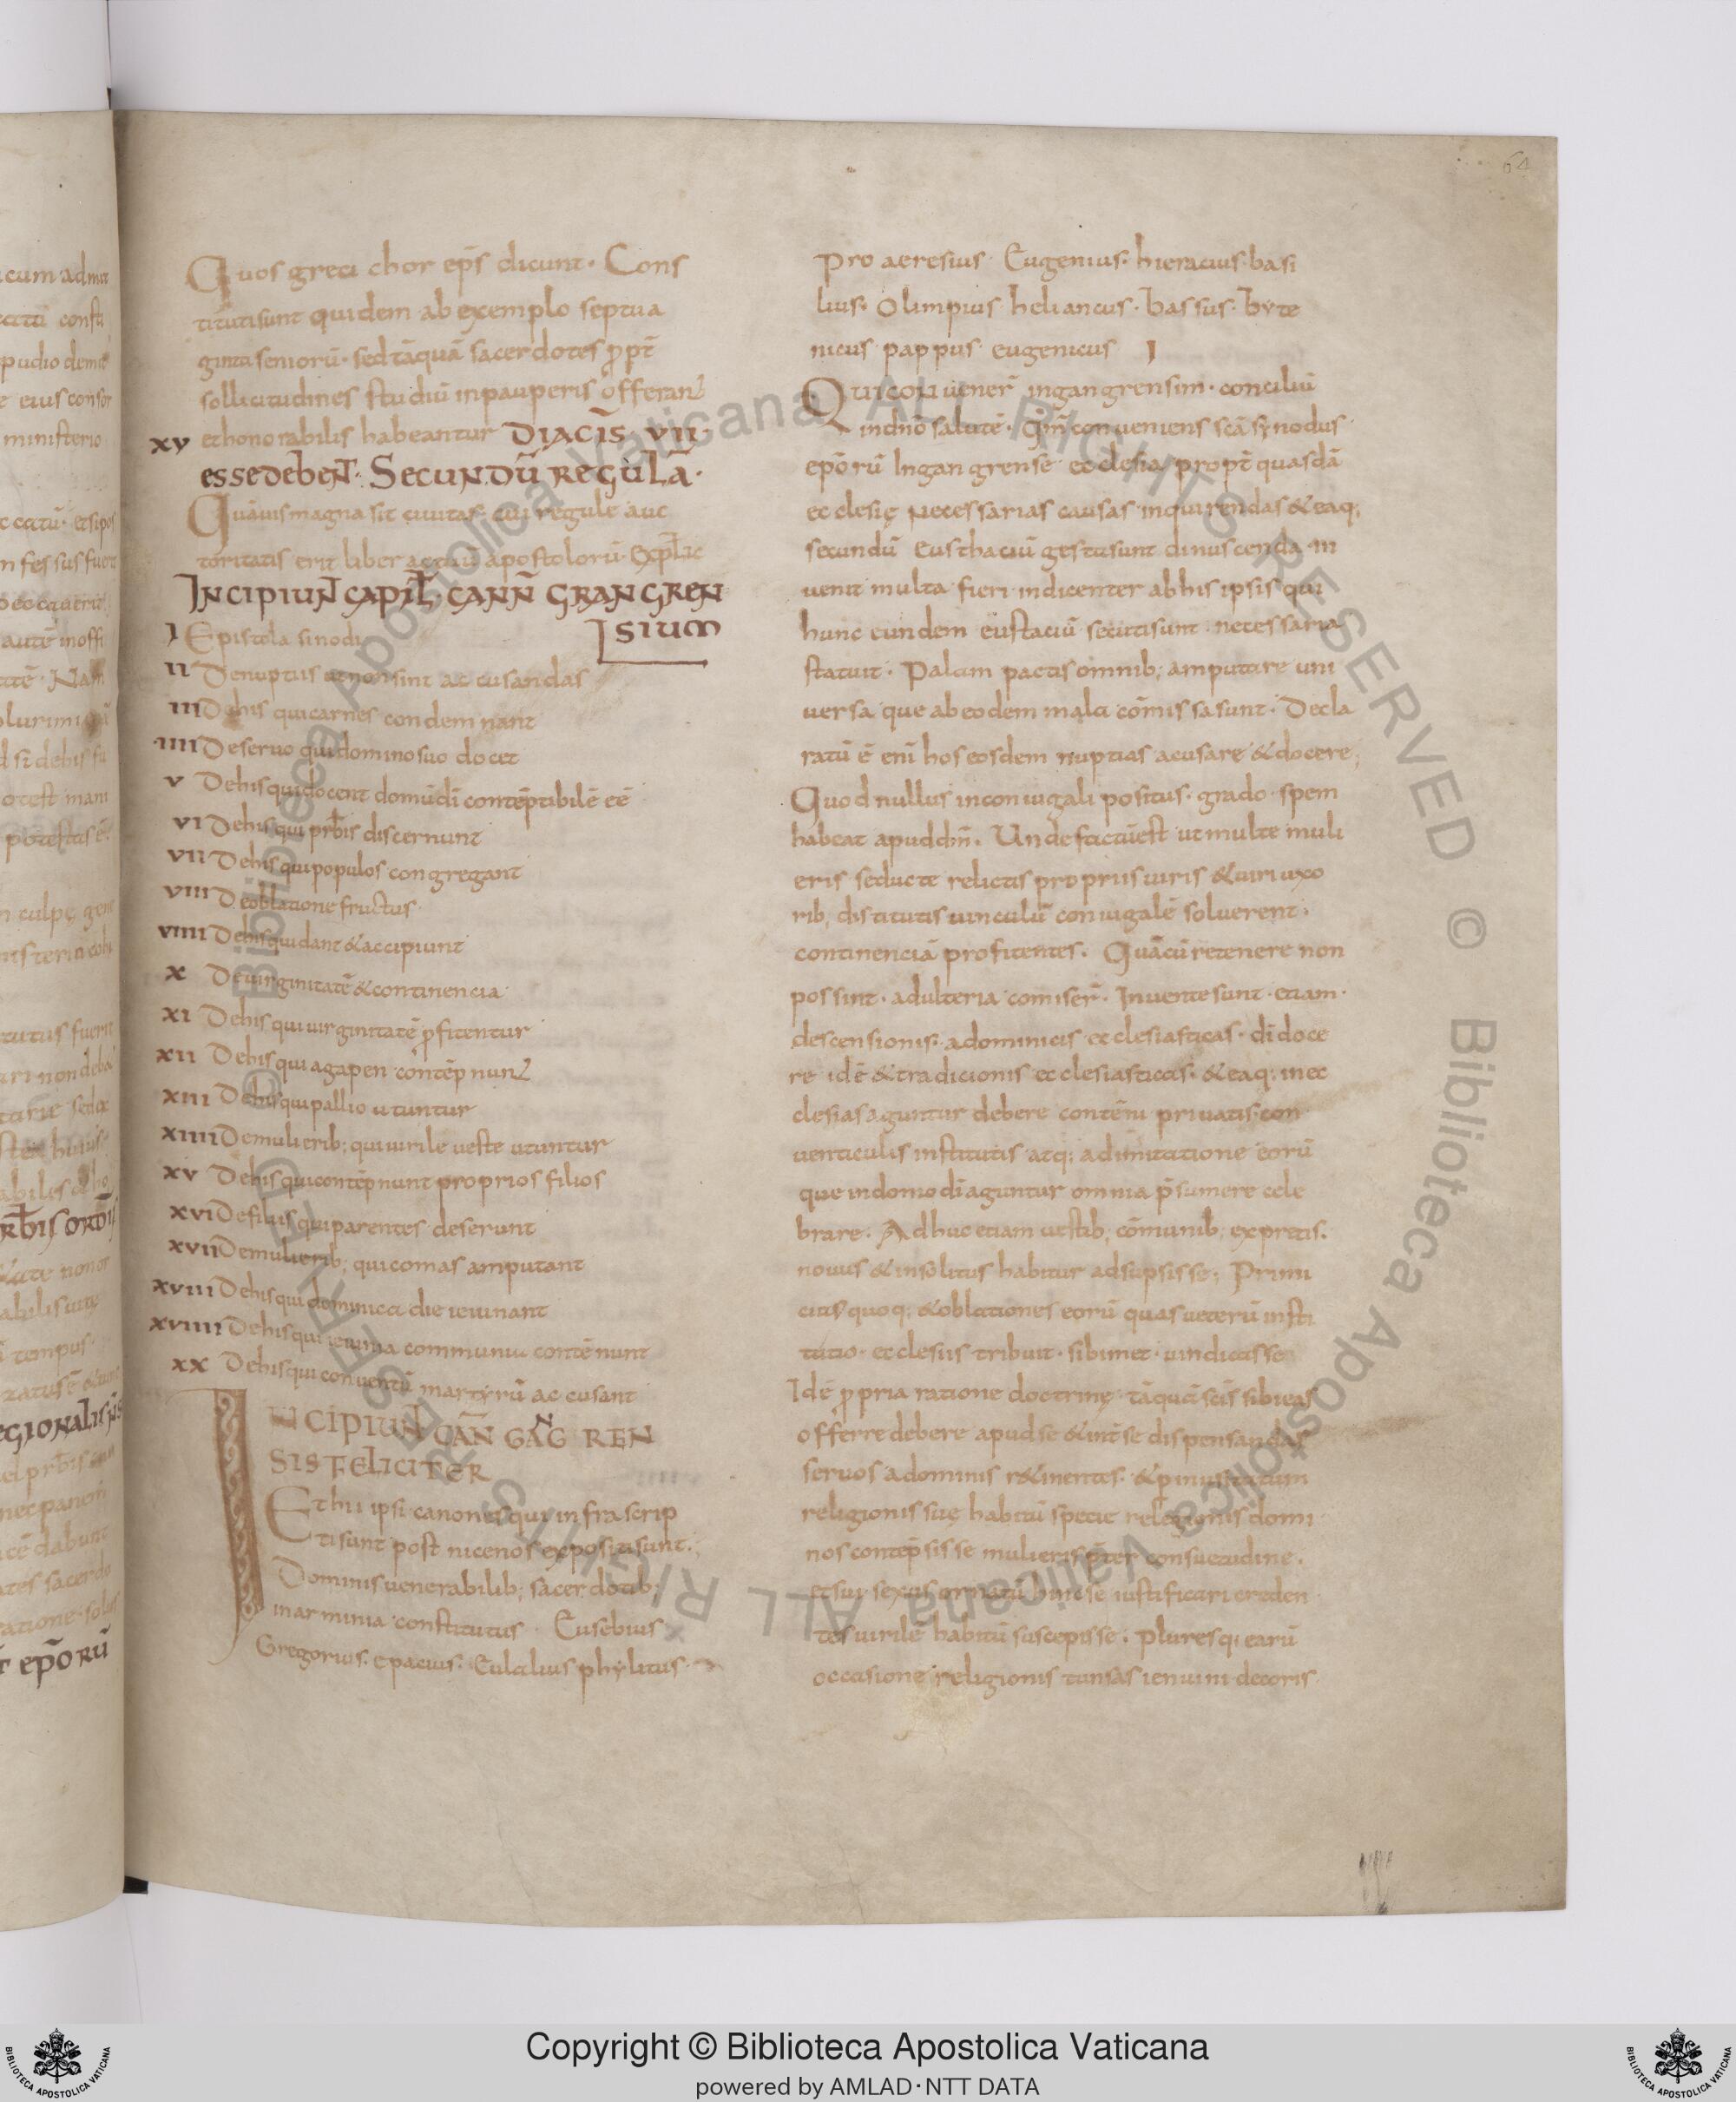 64
Quos greci chor ep̄s dicunt · Cons
titutisunt quidem ab exemplo septua
ginta seniorū · sed tāquā sacerdotes p̱pt̄
sollicitudines studiū inpauperis offeran
xv ethonorabilis habeantur DIACIS · VII ·
essedebent · Secundū regulā ·
Quāuis magna sit ciuitas · cui regule auc
toritatis erit liber actuū apostolorū · Explic
Incipiun̄ capit̄l · cann̄ grangren
sium
I Epistola sinodi
II Denuptiis ut non sint accusandas
III Dehis quicarnes condemnant
IIII Deseruo quidominosuo docet
V Dehisquidocent domūdī contēptibilē eē
VI Dehisqui prb̄is discernunt
VII Dehisquipopulos congregant
VIII Deoblatione fructus ·
VIIII Dehisquidant & accipiunt
X Deuirginitatē & continencia
XI Dehis quiuirginitatē p̱fitentur
XII Dehisquiagapen contēpnun
XIII Dehisquipallio utuntur
XIIII Demulierib; quiuirile ueste utuntur
XV Dehisquicontēpnunt proprios filios
XVI Defiliis quiparentes deserunt
XVII Demulierib; quicomas amputant
XVIII Dehisqui dominica die ieiunant
XVIIII Dehisqui ieiunia communia contēnunt
XX Dehisqui conuentū martyrū accusant
INCIPIUN̄ CĀN GANG REN
SIS FELICITER
Ethii ipsi canones qui infrascrip
tisunt post nicenos expositisunt ·
Dominis uenerabilib; sacerdotib;
inarminia constitutus · Eusebius
Gregorius · epacius · Eulalius phylitus ·
Pro aeresius · Eugenius · hieracius · basi
lius · Olimpius heliancus · bassus · byte
nicus pappus · eugenicus I
Quicon uener̄ ingangrensim · conciliū
indn̄o salutē · Qn̄m conueniens sc̄ā synodus ·
epōrū Ingangrense ecclesia propt̄ quasdā
ecclesię necessarias causas inquirendas & eaq;
secundū eusthaciū gestasunt dinuscenda · in
uenit multa fieri indicenter abhis ipsis qui
hunc eundem eustaciū secutisunt · necessaria
statuit · Palam pactis omnib; amputare uni
uersa que abeodem mala cōmissasunt · Decla
ratū ē enī hos eosdem nuptias acusare & docere;
Quod nullus inconiugali positus · grado · spem
habeat apuddn̄m · Unde factūest ut multe muli
eris seducte relictis propriis uiris & uiri uxo
rib; distitutis uinculū coniugalē soluerent ·
continenciā profitentes · Quācū retenere non
possint · adulteria comiser̄ · Inuentesunt · etiam ·
descensionis · adominicis ecclesiasticas · dī doce
re idē & tradicionis ecclesiasticas · & eaq; inec
clesias aguntur debere contēni priuatis · con
uenticulis institutis atq; adimitatione eorū
que indomo dī aguntur omnia p̄sumere cele
brare · Adhuc etiam uestib; cōmunib; expretis ·
nouus & insolitus habitur adsupsisse; Primi
cias quoq; & oblationes eorū quas ueterū insti
tutio · ecclesiis tribuit · sibimet · uindicasse
Idē p̱pria ratione doctrinę · tāquā sc̄is sibieas
offerre debere apudse & int̄ se dispensandas
seruos adominis r&inentes · & p
religionis suę habitū specie relegionis domi
nos contēpsisse mulieris p̄ter consuetudine ·
etsui sexus ornatū hincse iustificari creden
tes uirilē habitū suscepisse · Pluresq; earū
occasione religionis tunsas ienuini decoris ·
Copyright © Biblioteca Apostolica Vaticana
powered by AMLAD·NTT DATA